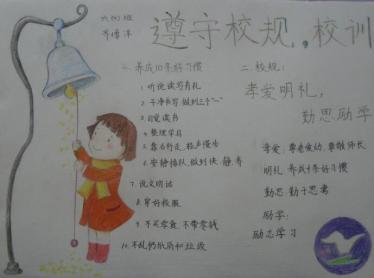 六(4)班
遵守校规,校训
一、养成10条好习惯
1、听说读写有礼
2、干净书写,做到三个"一"
3、自觉读书
4、整理学具
5、靠右行走,轻声慢步
6、安静排队,做到快、静、齐
7、说文明话
8、穿好校服
9、不买零食,不带零钱
10、不乱扔纸屑和垃圾
二、校规:
孝爱明礼,
勤思励学
孝爱:尊老爱幼,尊敬师长
明礼:养成十条好习惯
勤思:勤于思考
励学:
励志学习